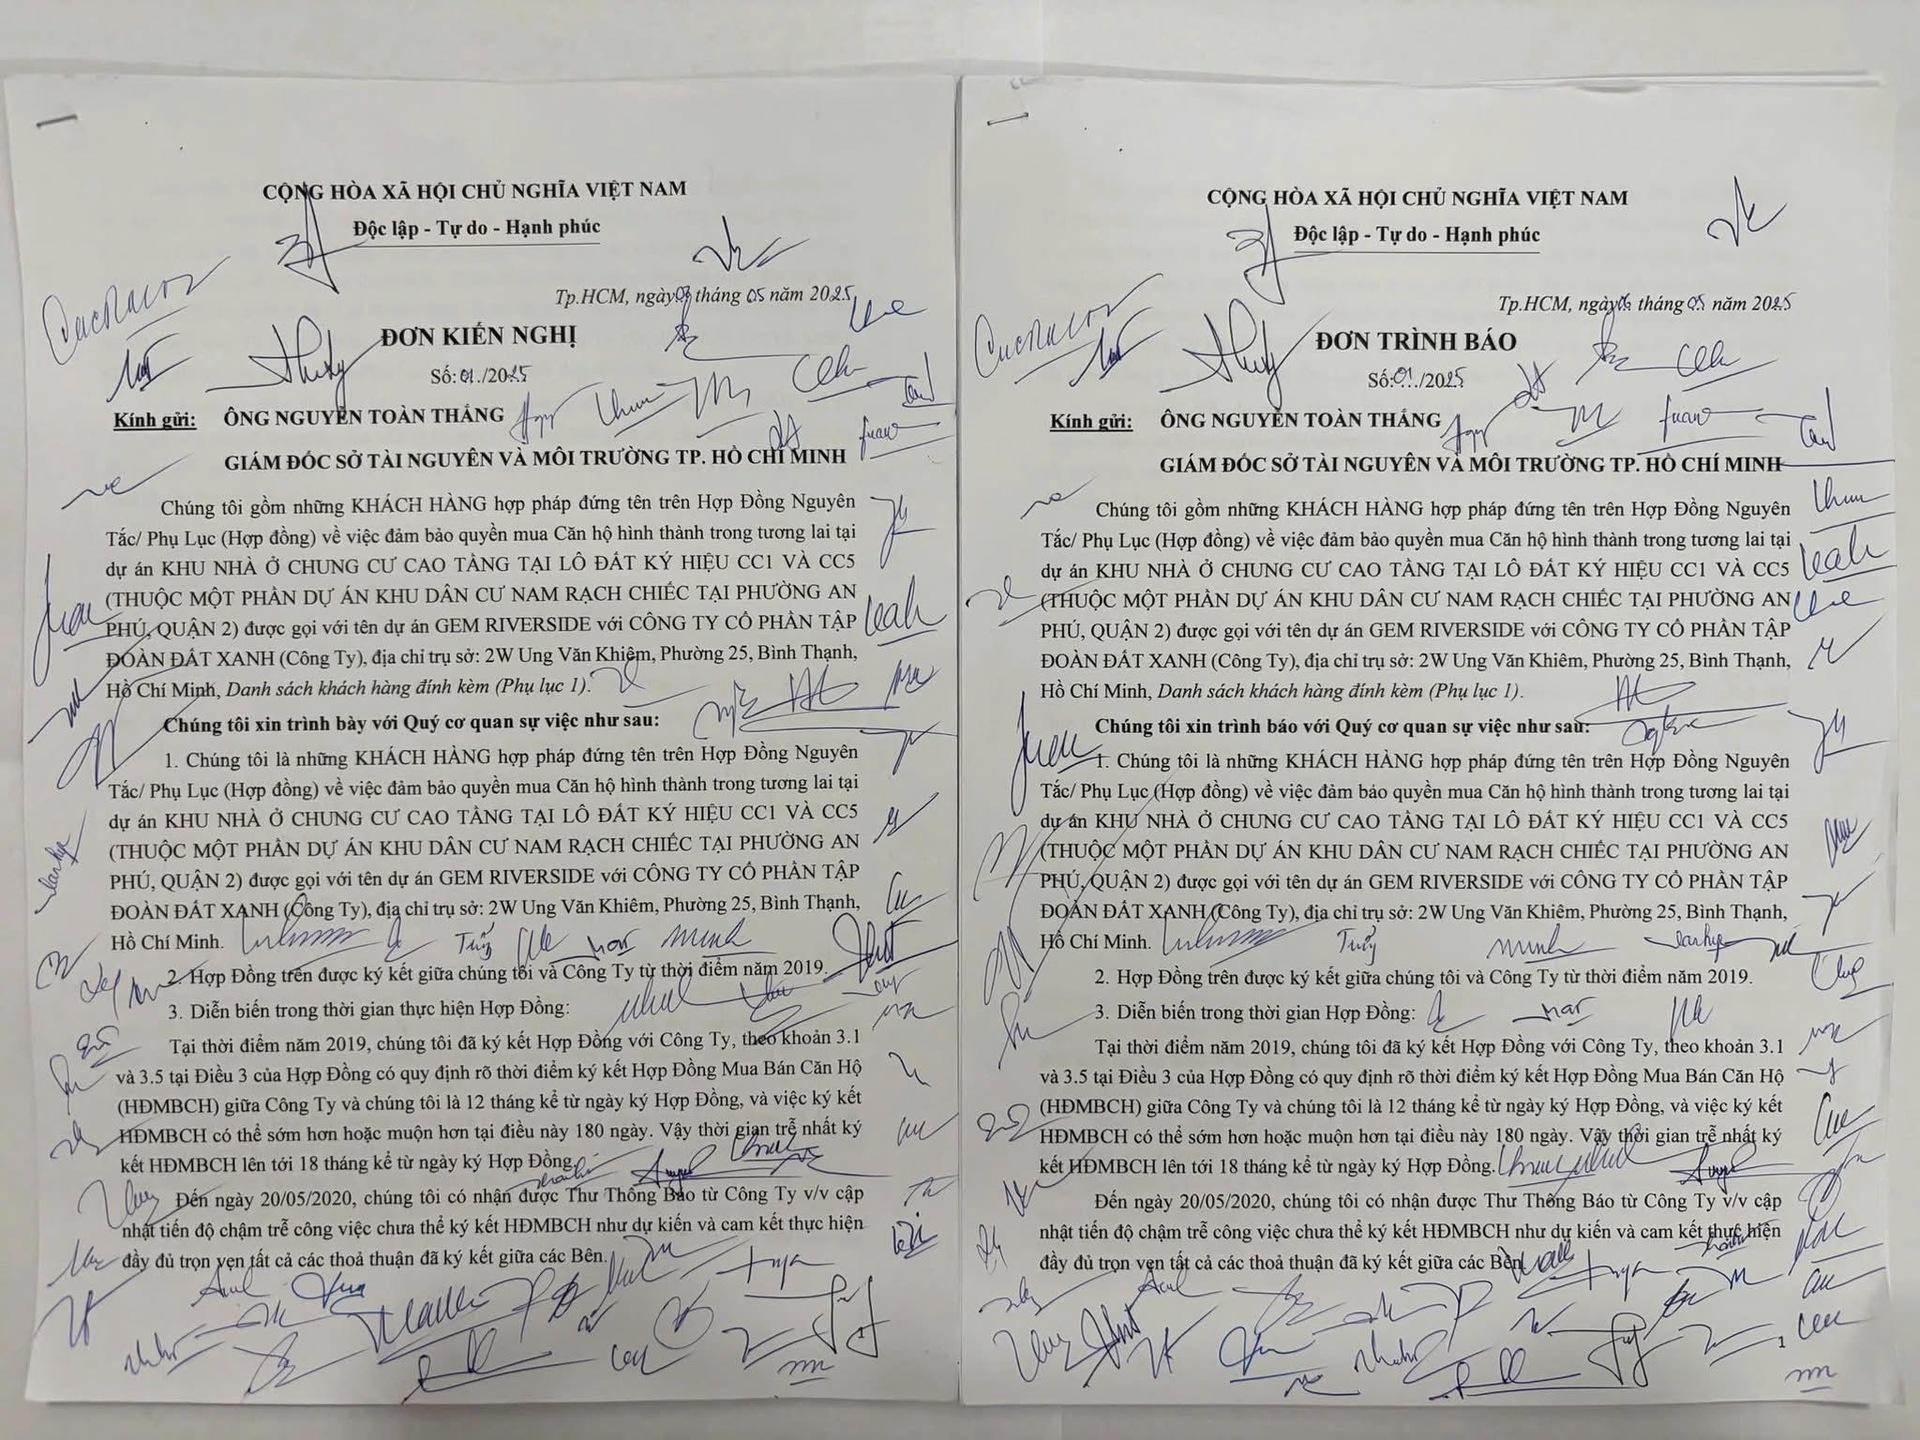 CỘNG HÒA XÃ HỘI CHỦ NGHĨA VIỆT NAM
Độc lập - Tự do - Hạnh phúc
Tp.HCM, ngày tháng 05 năm 2025
ĐƠN KIẾN NGHỊ
Số: 01./2025
Kính gửi: ÔNG NGUYỄN TOÀN THẮNG
GIÁM ĐỐC SỞ TÀI NGUYÊN VÀ MÔI TRƯỜNG TP. HỒ CHÍ MINH
Chúng tôi gồm những KHÁCH HÀNG hợp pháp đứng tên trên Hợp Đồng Nguyên
Tắc/ Phụ Lục (Hợp đồng) về việc đảm bảo quyền mua Căn hộ hình thành trong tương lai tại
dự án KHU NHÀ Ở CHUNG CƯ CAO TẦNG TẠI LÔ ĐẤT KÝ HIỆU CC1 VÀ CC5
(THUỘC MỘT PHẦN DỰ ÁN KHU DÂN CƯ NAM RẠCH CHIẾC TẠI PHƯỜNG AN
PHÚ, QUẬN 2) được gọi với tên dự án GEM RIVERSIDE với CÔNG TY CỔ PHẦN TẬP
ĐOÀN ĐẤT XANH (Công Ty), địa chỉ trụ sở: 2W Ung Văn Khiêm, Phường 25, Bình Thạnh,
Hồ Chí Minh, Danh sách khách hàng đính kèm (Phụ lục 1).
Chúng tôi xin trình bày với Quý cơ quan sự việc như sau:
1. Chúng tôi là những KHÁCH HÀNG hợp pháp đứng tên trên Hợp Đồng Nguyên
Tắc/ Phụ Lục (Hợp đồng) về việc đảm bảo quyền mua Căn hộ hình thành trong tương lai tại
dự án KHU NHÀ Ở CHUNG CƯ CAO TẦNG TẠI LÔ ĐẤT KÝ HIỆU CC1 VÀ CC5
(THUỘC MỘT PHẦN DỰ ÁN KHU DÂN CƯ NAM RẠCH CHIẾC TẠI PHƯỜNG AN
PHÚ, QUẬN 2) được gọi với tên dự án GEM RIVERSIDE với CÔNG TY CỔ PHẦN TẬP
ĐOÀN ĐẤT XANH (Công Ty), địa chỉ trụ sở: 2W Ung Văn Khiêm, Phường 25, Bình Thạnh,
Hồ Chí Minh.
2. Hợp Đồng trên được ký kết giữa chúng tôi và Công Ty từ thời điểm năm 2019.
3. Diễn biến trong thời gian thực hiện Hợp Đồng:
Tại thời điểm năm 2019, chúng tôi đã ký kết Hợp Đồng với Công Ty, theo khoản 3.1
và 3.5 tại Điều 3 của Hợp Đồng có quy định rõ thời điểm ký kết Hợp Đồng Mua Bán Căn Hộ
(HĐMBCH) giữa Công Ty và chúng tôi là 12 tháng kể từ ngày ký Hợp Đồng, và việc ký kết
HĐMBCH có thể sớm hơn hoặc muộn hơn tại điều này 180 ngày. Vậy thời gian trễ nhất ký
kết HĐMBCH lên tới 18 tháng kể từ ngày ký Hợp Đồng.
Đến ngày 20/05/2020, chúng tôi có nhận được Thư Thông Báo từ Công Ty v/v cập
nhật tiến độ chậm trễ công việc chưa thể ký kết HĐMBCH như dự kiến và cam kết thực hiện
đầy đủ trọn vẹn tất cả các thoả thuận đã ký kết giữa các Bên.
1
CỘNG HÒA XÃ HỘI CHỦ NGHĨA VIỆT NAM
Độc lập - Tự do - Hạnh phúc
Tp.HCM, ngày tháng 05 năm 2025
ĐƠN TRÌNH BÁO
Số: 01./2025
Kính gửi: ÔNG NGUYỄN TOÀN THẮNG
GIÁM ĐỐC SỞ TÀI NGUYÊN VÀ MÔI TRƯỜNG TP. HỒ CHÍ MINH
Chúng tôi gồm những KHÁCH HÀNG hợp pháp đứng tên trên Hợp Đồng Nguyên
Tắc/ Phụ Lục (Hợp đồng) về việc đảm bảo quyền mua Căn hộ hình thành trong tương lai tại
dự án KHU NHÀ Ở CHUNG CƯ CAO TẦNG TẠI LÔ ĐẤT KÝ HIỆU CC1 VÀ CC5
(THUỘC MỘT PHẦN DỰ ÁN KHU DÂN CƯ NAM RẠCH CHIẾC TẠI PHƯỜNG AN
PHÚ, QUẬN 2) được gọi với tên dự án GEM RIVERSIDE với CÔNG TY CỔ PHẦN TẬP
ĐOÀN ĐẤT XANH (Công Ty), địa chỉ trụ sở: 2W Ung Văn Khiêm, Phường 25, Bình Thạnh,
Hồ Chí Minh, Danh sách khách hàng đính kèm (Phụ lục 1).
Chúng tôi xin trình báo với Quý cơ quan sự việc như sau:
1. Chúng tôi là những KHÁCH HÀNG hợp pháp đứng tên trên Hợp Đồng Nguyên
Tắc/ Phụ Lục (Hợp đồng) về việc đảm bảo quyền mua Căn hộ hình thành trong tương lai tại
dự án KHU NHÀ Ở CHUNG CƯ CAO TẦNG TẠI LÔ ĐẤT KÝ HIỆU CC1 VÀ CC5
(THUỘC MỘT PHẦN DỰ ÁN KHU DÂN CƯ NAM RẠCH CHIẾC TẠI PHƯỜNG AN
PHÚ, QUẬN 2) được gọi với tên dự án GEM RIVERSIDE với CÔNG TY CỔ PHẦN TẬP
ĐOÀN ĐẤT XANH (Công Ty), địa chỉ trụ sở: 2W Ung Văn Khiêm, Phường 25, Bình Thạnh,
Hồ Chí Minh.
2. Hợp Đồng trên được ký kết giữa chúng tôi và Công Ty từ thời điểm năm 2019.
3. Diễn biến trong thời gian Hợp Đồng:
Tại thời điểm năm 2019, chúng tôi đã ký kết Hợp Đồng với Công Ty, theo khoản 3.1
và 3.5 tại Điều 3 của Hợp Đồng có quy định rõ thời điểm ký kết Hợp Đồng Mua Bán Căn Hộ
(HĐMBCH) giữa Công Ty và chúng tôi là 12 tháng kể từ ngày ký Hợp Đồng, và việc ký kết
HĐMBCH có thể sớm hơn hoặc muộn hơn tại điều này 180 ngày. Vậy thời gian trễ nhất ký
kết HĐMBCH lên tới 18 tháng kể từ ngày ký Hợp Đồng.
Đến ngày 20/05/2020, chúng tôi có nhận được Thư Thông Báo từ Công Ty v/v cập
nhật tiến độ chậm trễ công việc chưa thể ký kết HĐMBCH như dự kiến và cam kết thực hiện
đầy đủ trọn vẹn tất cả các thoả thuận đã ký kết giữa các Bên.
1